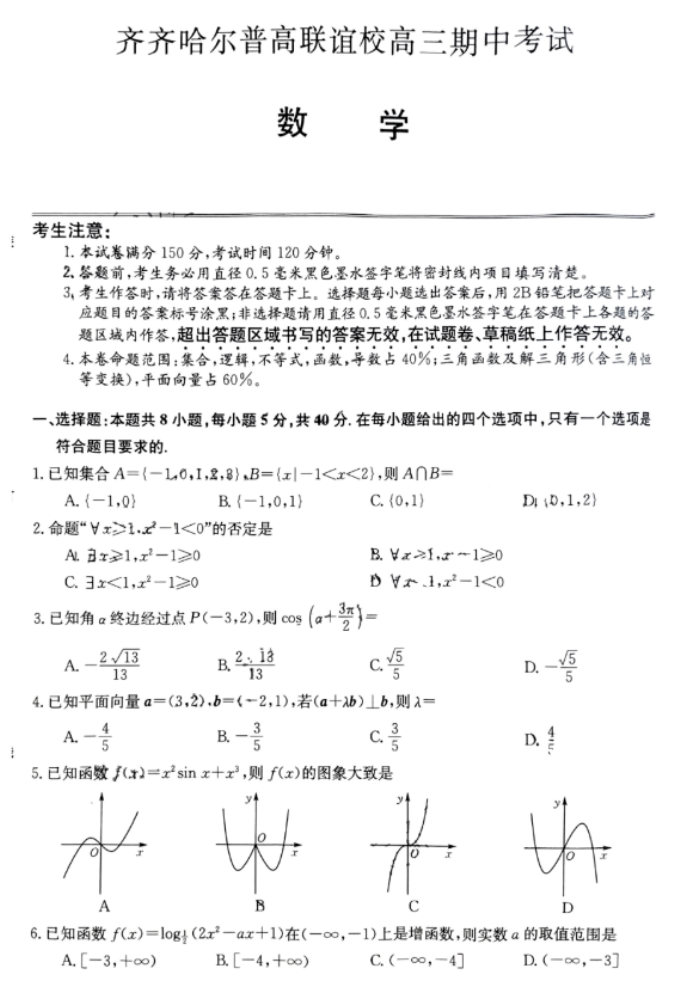 齐齐哈尔普高联谊校高三期中考试
数 学
考生注意:
1. 本试卷满分 150 分,考试时间 120 分钟。
2. 答题前,考生务必用直径 0.5 毫米黑色墨水签字笔将密封线内项目填写清楚。
3. 考生作答时,请将答案答在答题卡上。选择题每小题选出答案后,用 2B 铅笔把答题卡上对
应题目的答案标号涂黑;非选择题请用直径 0.5 毫米黑色墨水签字笔在答题卡上各题的答
题区域内作答,超出答题区域书写的答案无效,在试题卷、草稿纸上作答无效。
4. 本卷命题范围:集合,逻辑,不等式,函数,导数占 40%;三角函数及解三角形(含三角恒
等变换),平面向量占 60%。
一、选择题:本题共 8 小题,每小题 5 分,共 40 分. 在每小题给出的四个选项中,只有一个选项是
符合题目要求的.
1. 已知集合 A={-1,0,1,2,8},B={x|-1<x<2},则 A∩B=
A. {-1,0} B. {-1,0,1} C. {0,1} D. {0,1,2}
2. 命题“∀x≥1,x²-1<0”的否定是
A. ∃x≥1,x²-1≥0 B. ∀x≥1,x²-1≥0
C. ∃x<1,x²-1≥0 D. ∀x 1,x²-1<0
3. 已知角 α 终边经过点 P(-3,2),则 cos(α+3π/2)=
A. -2√13/13 B. 2√13/13 C. √5/5 D. -√5/5
4. 已知平面向量 a=(3,2),b=(-2,1),若(a+λb)⊥b,则 λ=
A. -4/5 B. -3/5 C. 3/5 D. 4/5
5. 已知函数 f(x)=x²sin x+x³,则 f(x)的图象大致是
O x y O x y O x y O x
A B C D
6. 已知函数 f(x)=log½(2x²-ax+1)在(-∞,-1)上是增函数,则实数 a 的取值范围是
A. [-3,+∞) B. [-4,+∞) C. (-∞,-4] D. (-∞,-3]